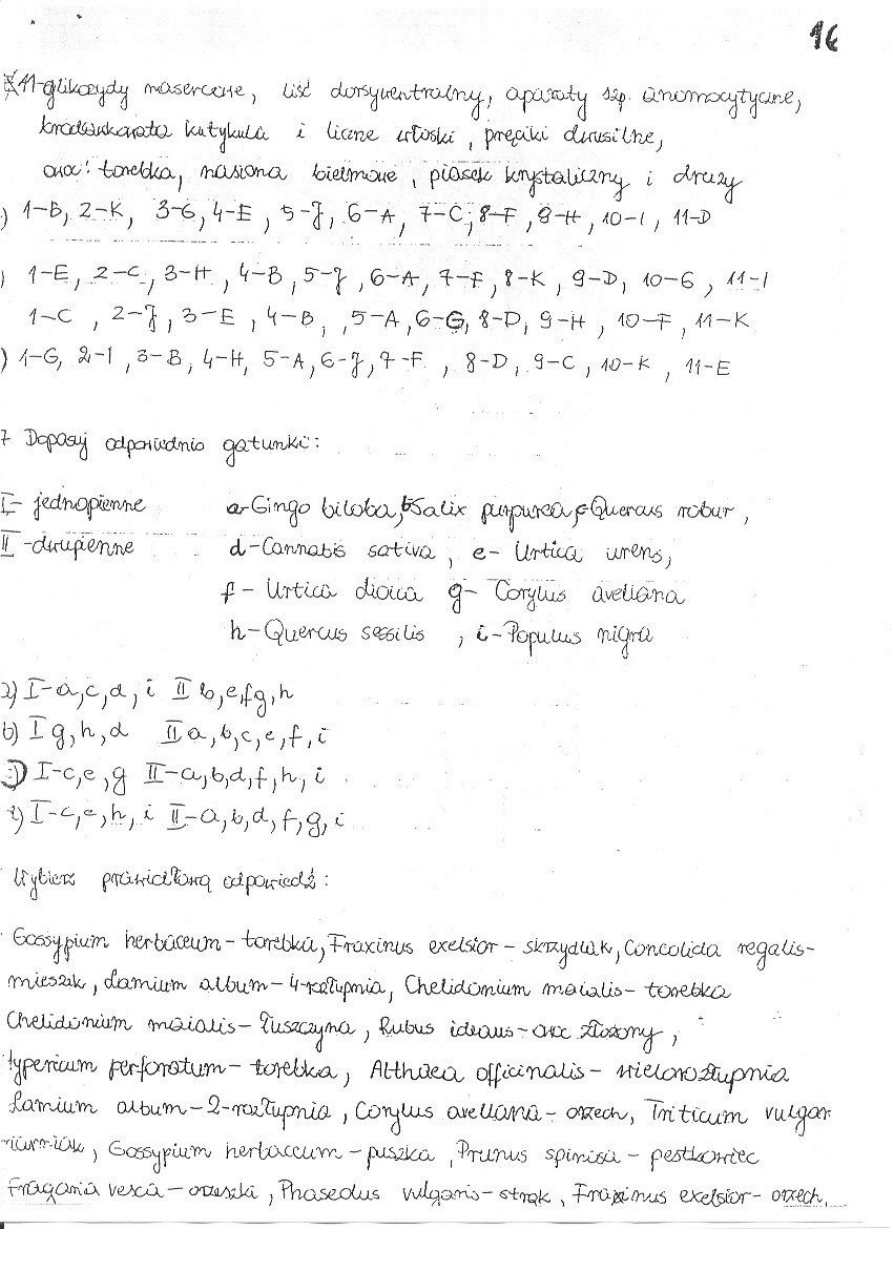 16
11-glikozydy nasercowe, liść dorsywentralny, aparaty szp. anomocytyczne,
kutykula i liczne włoski, pręciki dwusilne,
owoc: torebka, nasiona bielmowe, piasek krystaliczny i druzy
) 1-B, 2-K, 3-G, 4-E, 5-J, 6-A, 7-C, 8-F, 9-H, 10-I, 11-D
) 1-E, 2-C, 3-H, 4-B, 5-J, 6-A, 7-F, 8-K, 9-D, 10-G, 11-I
1-C, 2-J, 3-E, 4-B, 5-A, 6-G, 8-D, 9-H, 10-F, 11-K
) 1-G, 2-I, 3-B, 4-H, 5-A, 6-J, 7-F, 8-D, 9-C, 10-K, 11-E
7 Dopasuj odpowiednio gatunki:
I- jednopienne a-Gingo biloba, b-Salix purpurea, c-Quercus robur,
II-dwupienne d-Cannabis sativa, e- Urtica urens,
f- Urtica dioica g- Corylus avellana
h-Quercus sessilis, i-Populus nigra
a) I-a,c,d,i II b,e,f,g,h
b) I g,h,d II a,b,c,e,f,i
c) I-c,e,g II-a,b,d,f,h,i
d) I-c,e,h,i II-a,b,d,f,g,i
Wybierz prawidłową odpowiedź:
Gossypium herbaceum-torebka, Fraxinus exelsior-skrzydlak, Concolida regalis-
mieszek, Lamium album-4-rozłupnia, Chelidonium maialis-torebka
Chelidonium maialis-łuszczyna, Rubus ideaus-owoc złożony,
Hypericum perforatum-torebka, Althaea officinalis-wielorozłupnia
Lamium album-2-rozłupnia, Corylus avellana-orzech, Triticum vulgar
ziarniak, Gossypium herbaccum-puszka, Prunus spinisa-pestkowiec
Fragaria vesca-orzeszki, Phaseolus vulgaris-strąk, Fraxinus exelsior-orzech,